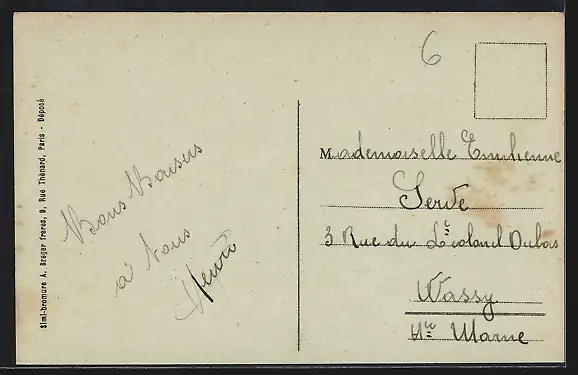 Simi-bromure A. Breger freres, 9, Rue Thénard, Paris - Déposé
6
Bons Baisers
à tous
Henri
Mademoiselle Emilienne
Serve
3 Rue du Lt Colonel Dubois
Wassy
Hte Marne